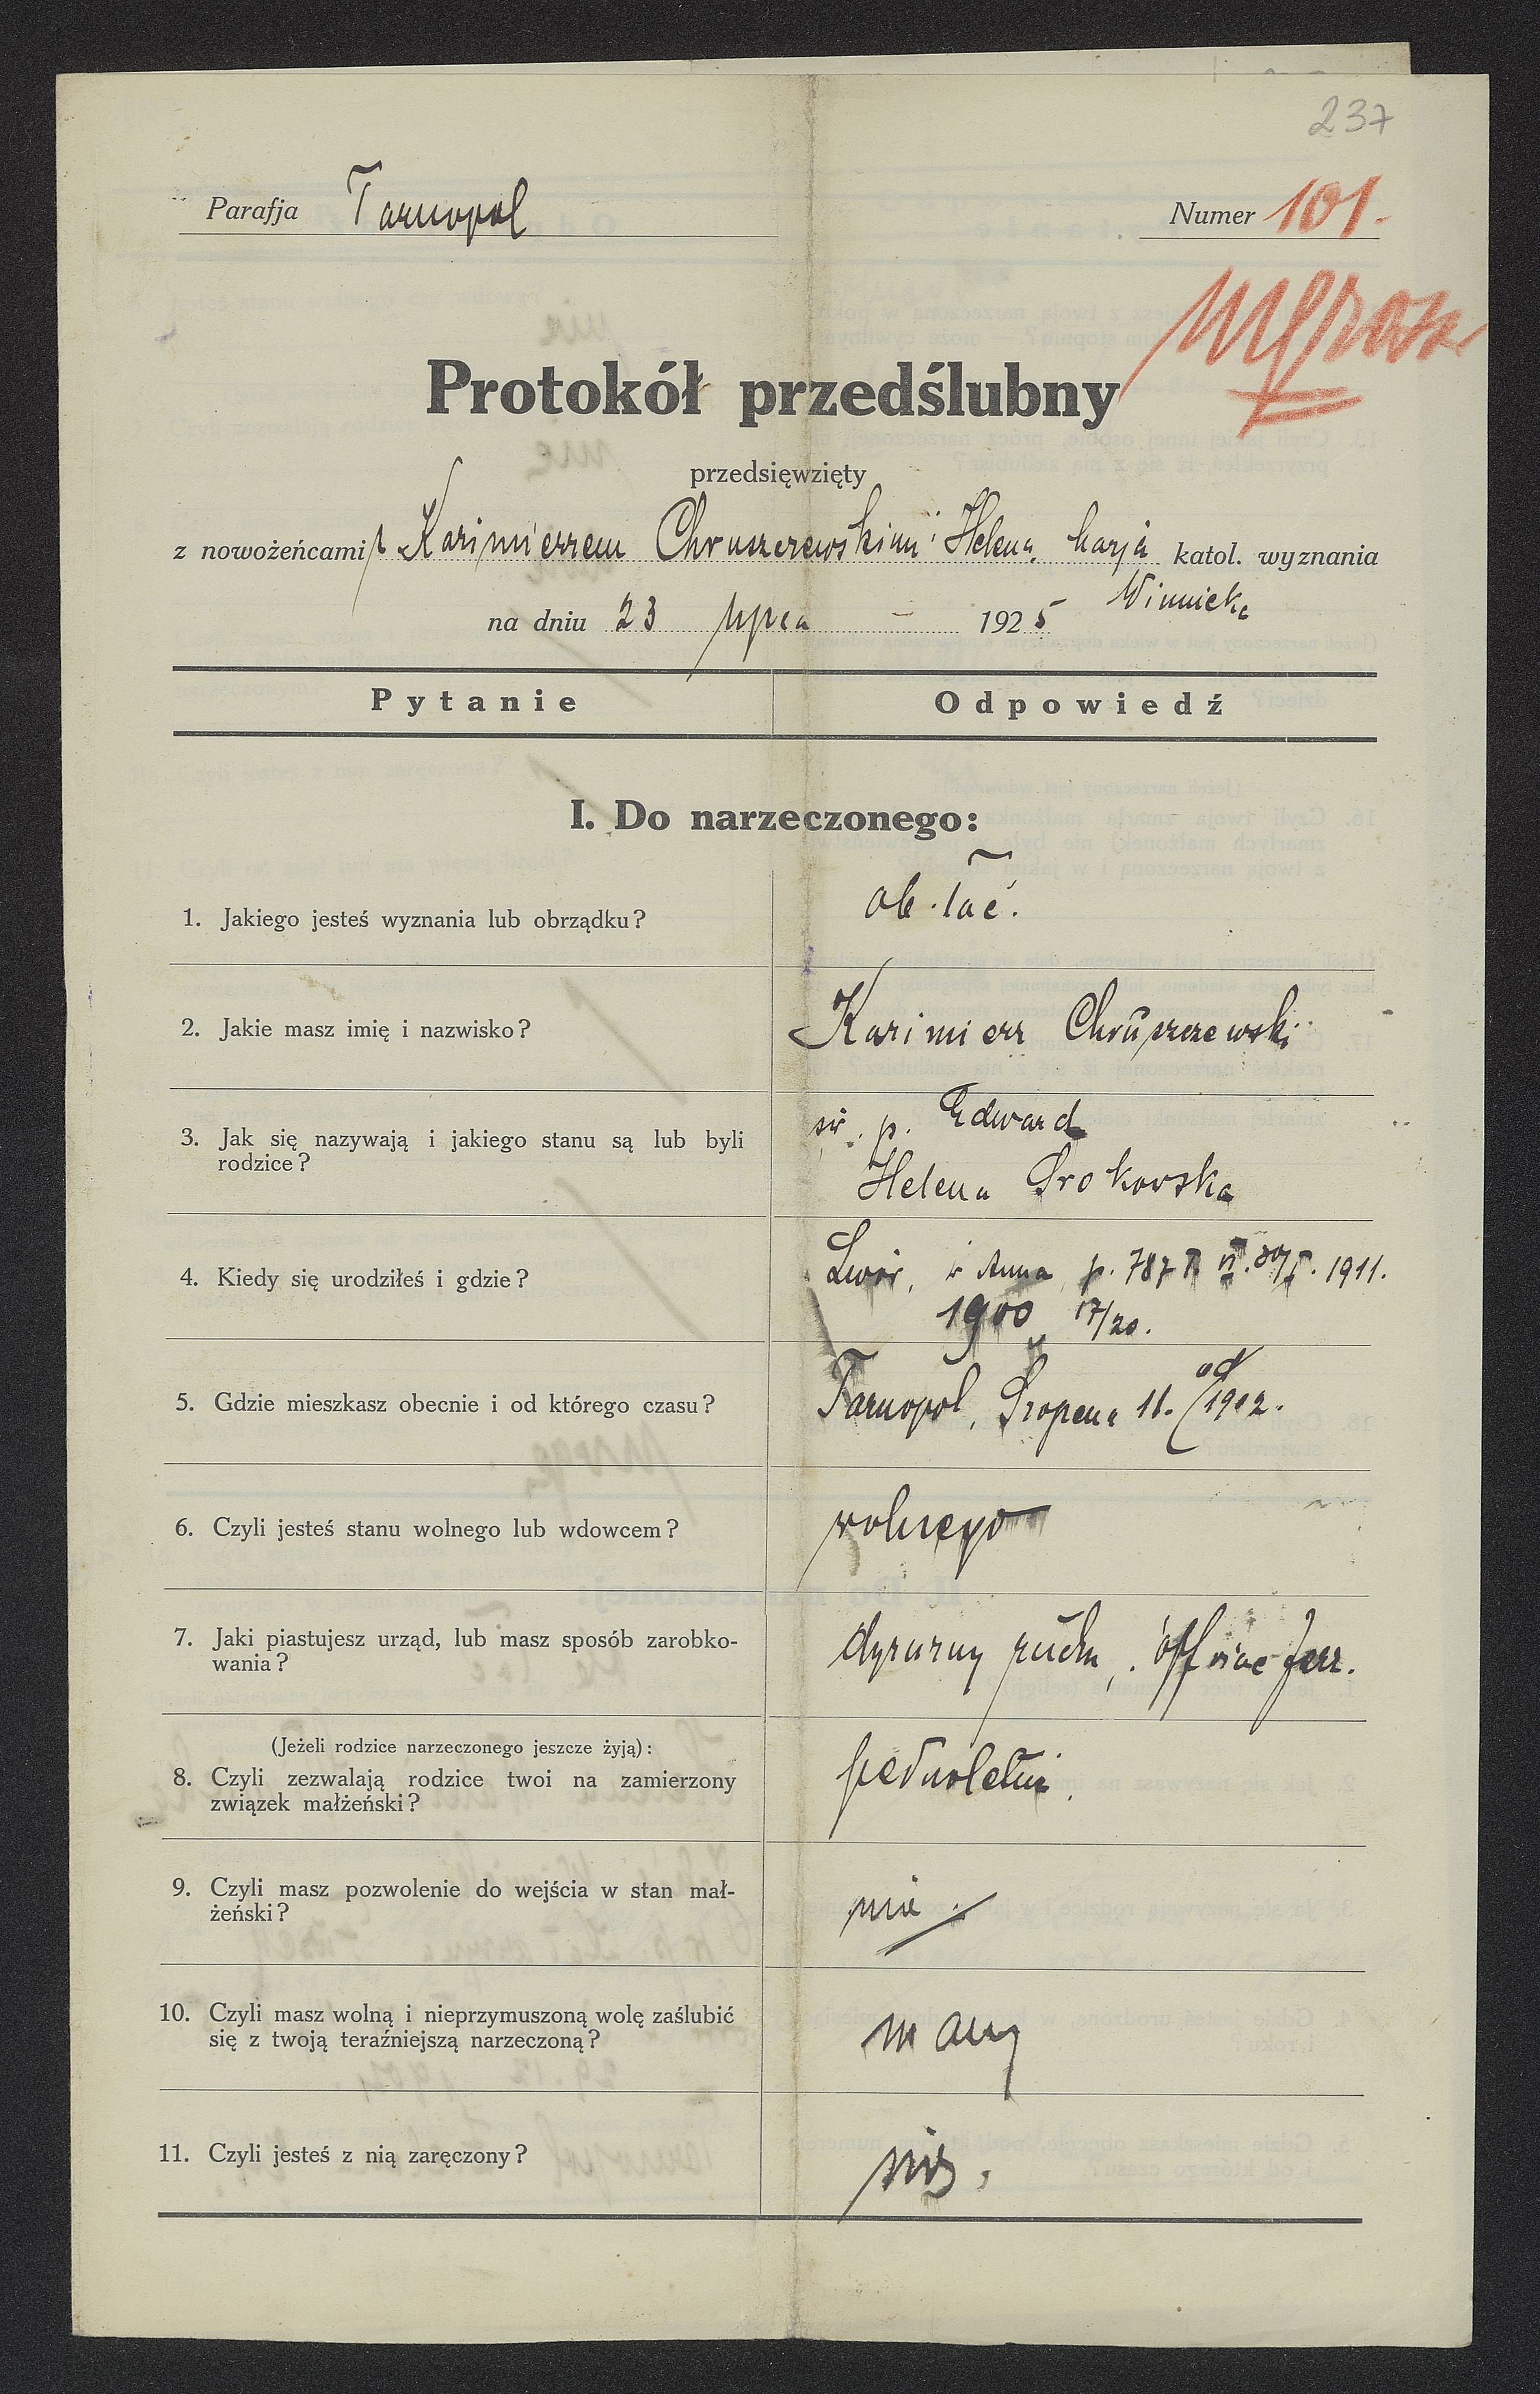 237
Parafja Tarnopol Numer 101.
Protokół przedślubny
przedsięwzięty
z nowożeńcami p Kazimierzem Chruszczewskim i Heleną Marją katol. wyznania
Winnicką
na dniu 23 lipca 1925
Pytanie Odpowiedź
I. Do narzeczonego:
1. Jakiego jesteś wyznania lub obrządku? ob. łać.
2. Jakie masz imię i nazwisko? Kazimierz Chruszczewski
3. Jak się nazywają i jakiego stanu są lub byli rodzice? śp. Edward
Helena Srokowska
4. Kiedy się urodziłeś i gdzie? Lwów, św Anna p. 787 T. VI. 30/I. 1911.
1900 17/20.
5. Gdzie mieszkasz obecnie i od którego czasu? Tarnopol, Szopena 11. od 1902.
6. Czyli jesteś stanu wolnego lub wdowcem? wolnego
7. Jaki piastujesz urząd, lub masz sposób zarobko-
wania? dyżurny ruchu,
(Jeżeli rodzice narzeczonego jeszcze żyją):
8. Czyli zezwalają rodzice twoi na zamierzony
związek małżeński? pełnoletni.
9. Czyli masz pozwolenie do wejścia w stan mał-
żeński? nie.
10. Czyli masz wolną i nieprzymuszoną wolę zaślubić
się z twoją teraźniejszą narzeczoną? mam
11. Czyli jesteś z nią zaręczony?